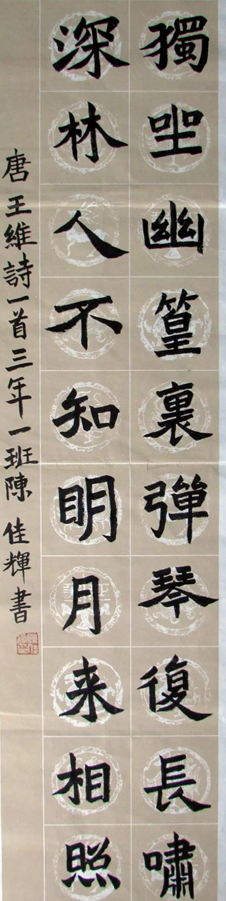 獨坐幽篁裏彈琴復長嘯
深林人不知明月来相照
唐王維詩一首三年一班陳佳輝書